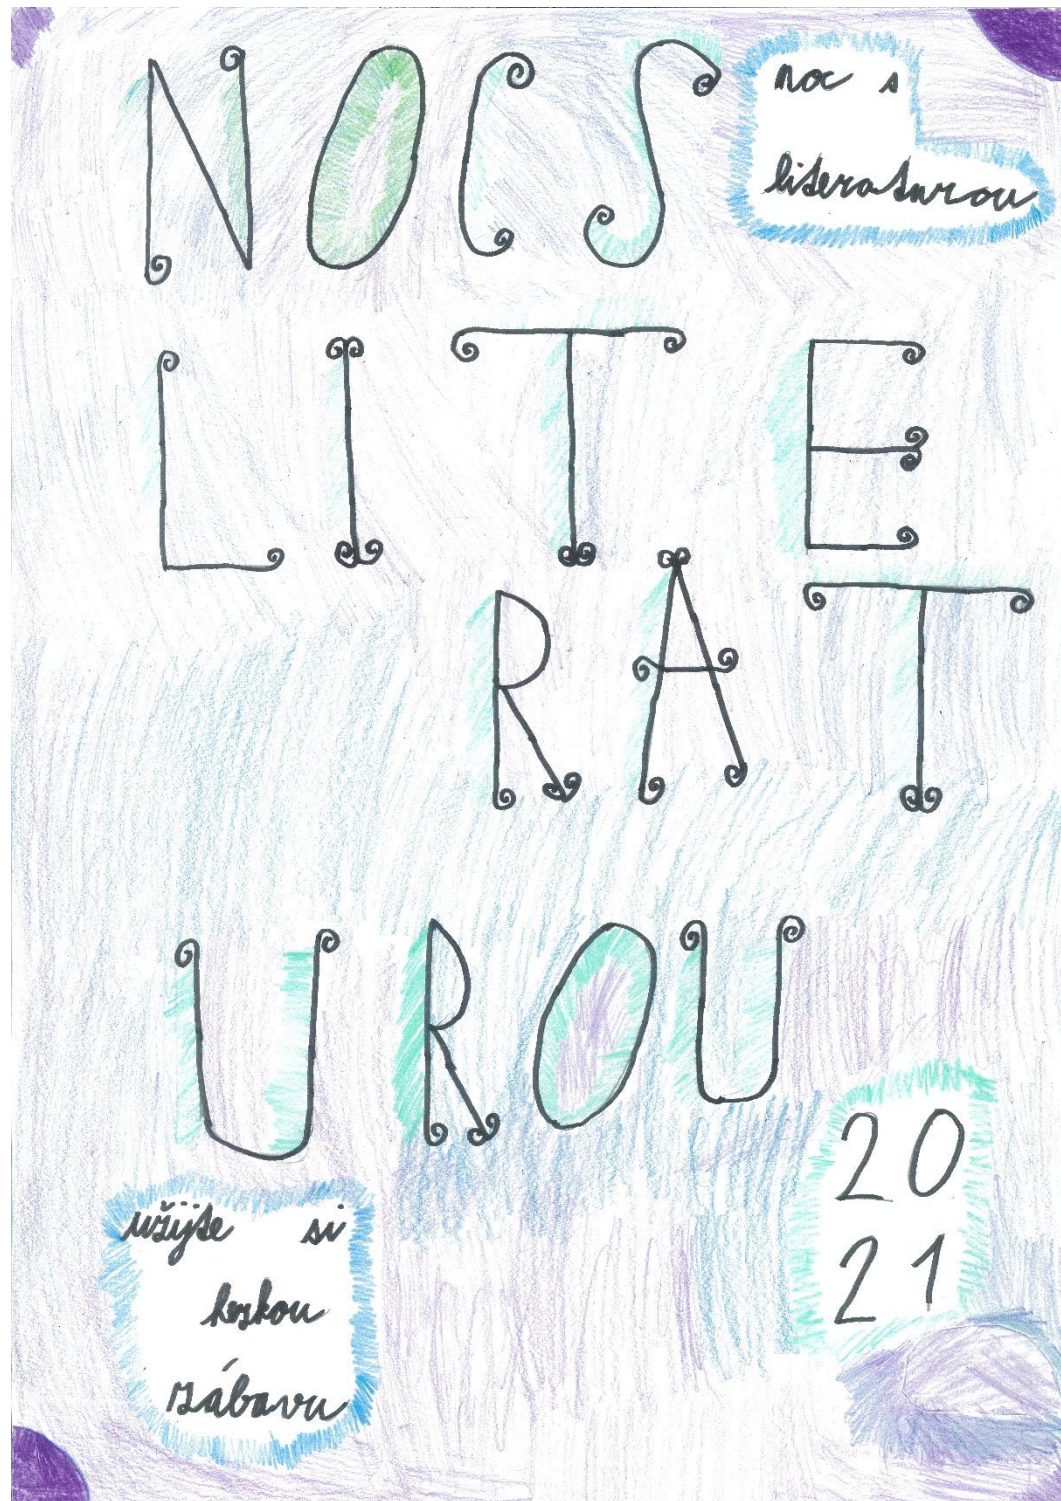 NOC S
noc s
literaturou
LITE
RAT
UROU
20
21
užijte si
hezkou
zábavu